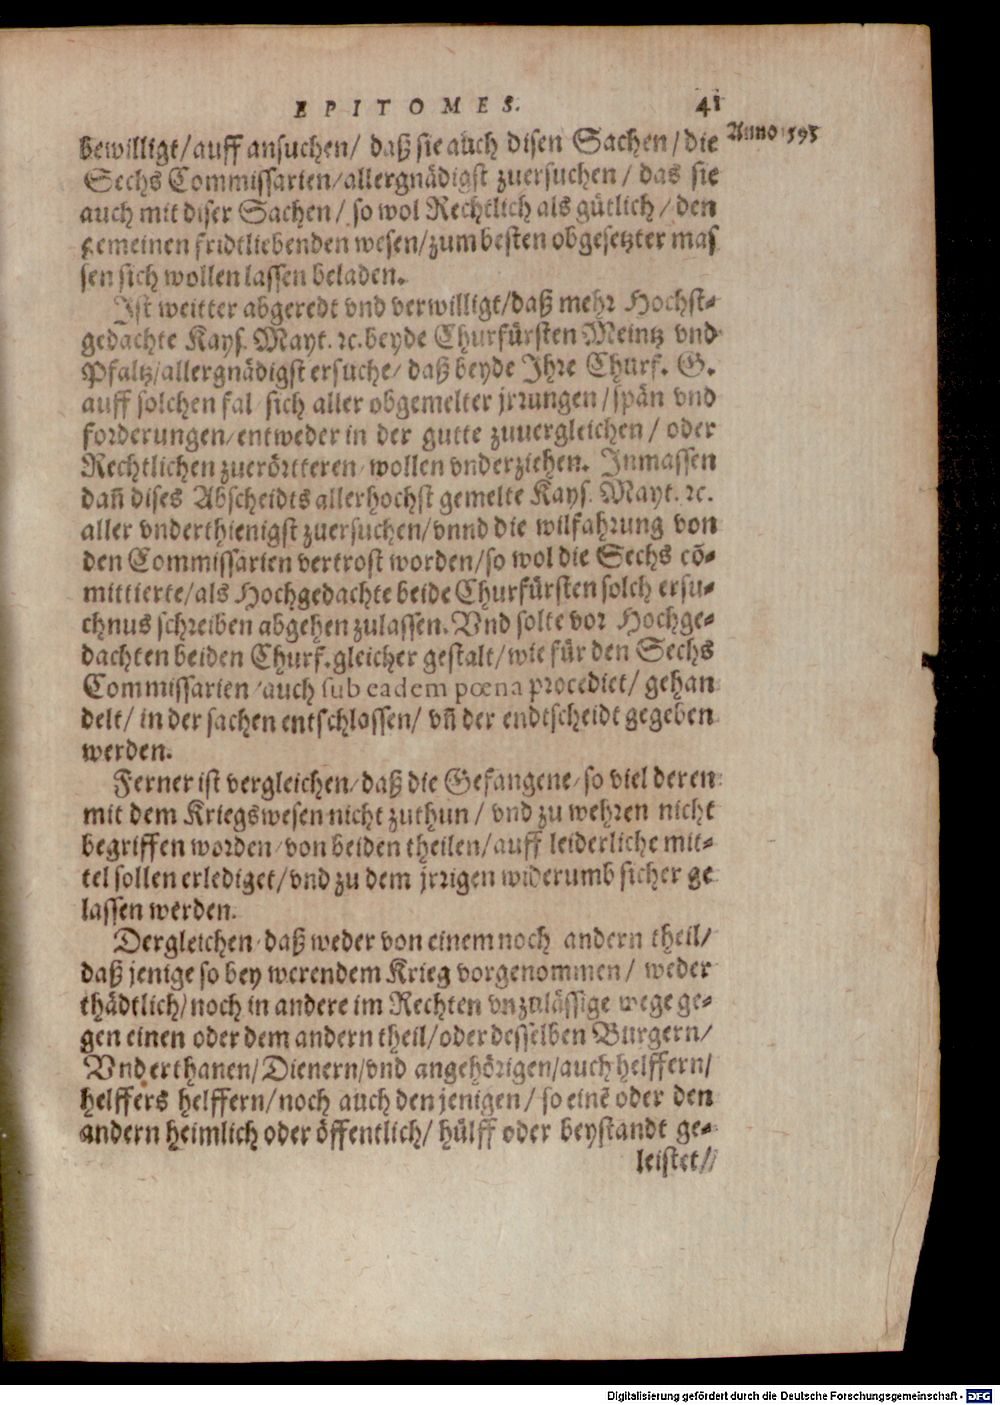 EPITOMES. 41
Anno 595
bewilligt/auff ansuchen/ daß sie auch disen Sachen/die
Sechs Commissarien/allergnädigst zuersuchen/ das sie
auch mit diser Sachen/ so wol Rechtlich als gütlich/ den
gemeinen fridtliebenden wesen/zum besten obgesetzter mas
sen sich wollen lassen beladen.
Ist weitter abgeredt vnd verwilligt/daß mehr Hochst-
gedachte Kays. Mayt. ꝛc. beyde Churfürsten Meintz vnd
Pfaltz/allergnädigst ersuche/ daß beyde Ihre Churf. G.
auff solchen fal sich aller obgemelter jrrungen/spän vnd
forderungen/entweder in der gutte zuuergleichen/ oder
Rechtlichen zuerörtteren/ wollen vnderziehen. Inmassen
dañ dises Abscheidts allerhochst gemelte Kays. Mayt. ꝛc.
aller vnderthienigst zuersuchen/vnnd die wilfahrung von
den Commissarien vertrost worden/so wol die Sechs cõ-
mittierte/als Hochgedachte beide Churfürsten solch ersu-
chnus schreiben abgehen zulassen. Vnd solte vor Hochge-
dachten beiden Churf. gleicher gestalt/wie für den Sechs
Commissarien/auch sub eadem pœna procediet/ gehan
delt/ in der sachen entschlossen/ vñ der endtscheidt gegeben
werden.
Ferner ist vergleichen/daß die Gefangene/so viel deren
mit dem Kriegswesen nicht zuthun/ vnd zu wehren nicht
begriffen worden/von beiden theilen/auff leiderliche mit-
tel sollen erlediget/vnd zu dem jrrigen widerumb sicher ge
lassen werden.
Dergleichen/daß weder von einem noch andern theil/
daß jenige so bey werendem Krieg vorgenommen/ weder
thädtlich/noch in andere im Rechten vnzulässige wege ge-
gen einen oder dem andern theil/oder desselben Burgern/
Vnderthanen/Dienern/vnd angehörigen/auch helffern/
helffers helffern/noch auch den jenigen/ so einẽ oder den
andern heimlich oder öffentlich/ hülff oder beystandt ge-
leistet//
Digitalisierung gefördert durch die Deutsche Forschungsgemeinschaft - DFG